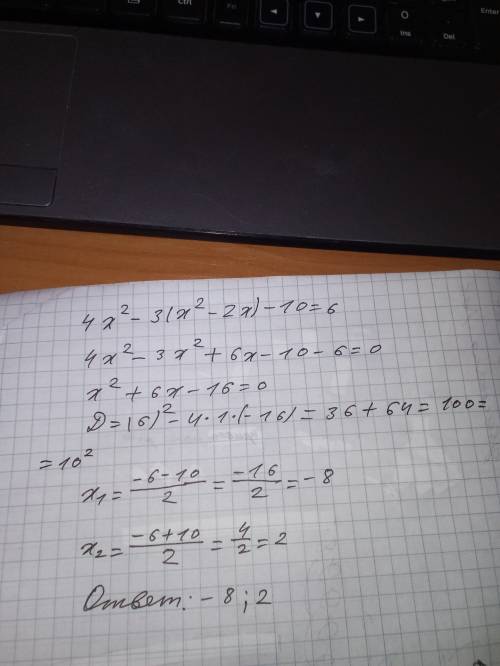 Ctrl Fn ◄ ▼ ► O Ins Del Enter
4x² - 3(x² - 2x) - 10 = 6
4x² - 3x² + 6x - 10 - 6 = 0
x² + 6x - 16 = 0
D = (6)² - 4·1·(-16) = 36 + 64 = 100 =
= 10²
x₁ = \frac{-6-10}{2} = \frac{-16}{2} = -8
x₂ = \frac{-6+10}{2} = \frac{4}{2} = 2
Ответ: -8; 2